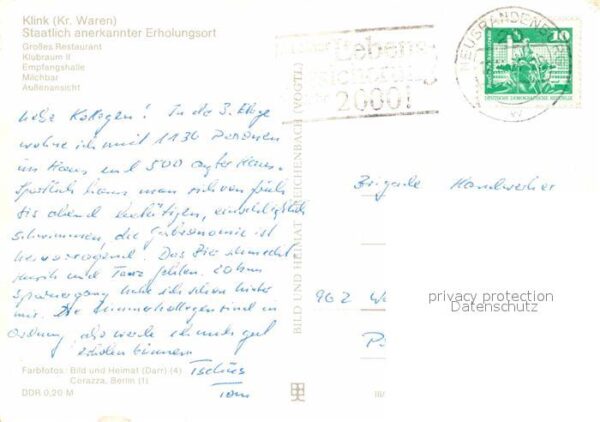 Klink (Kr. Waren)
Staatlich anerkannter Erholungsort
Großes Restaurant
Klubraum II
Empfangshalle
Milchbar
Außenansicht
Lebens
2000!
NEUBRANDENB
10
DEUTSCHE DEMOKRATISCHE REPUBLIK
Kollegen! In der 3. Etage
wohne ich mit 1136 Personen
im Haus und 500 außer Haus.
Sportlich kann man sich von früh
bis abend betätigen, einschließlich
schwimmen, die Gastronomie ist
hervorragend. Das Bier schmeckt
und Tanz fehlen. 20 km
Spaziergang habe ich schon hinter
mir. Die Zimmerkollegen sind in
Ordnung, also werde ich mich gut
erholen können
Tschüs
Tom
Farbfotos: Bild und Heimat (Darr) (4)
Corazza, Berlin (1)
DDR 0,20 M
BILD UND HEIMAT REICHENBACH (VOGTL)
Brigade Handwerker
962
privacy protection
Datenschutz